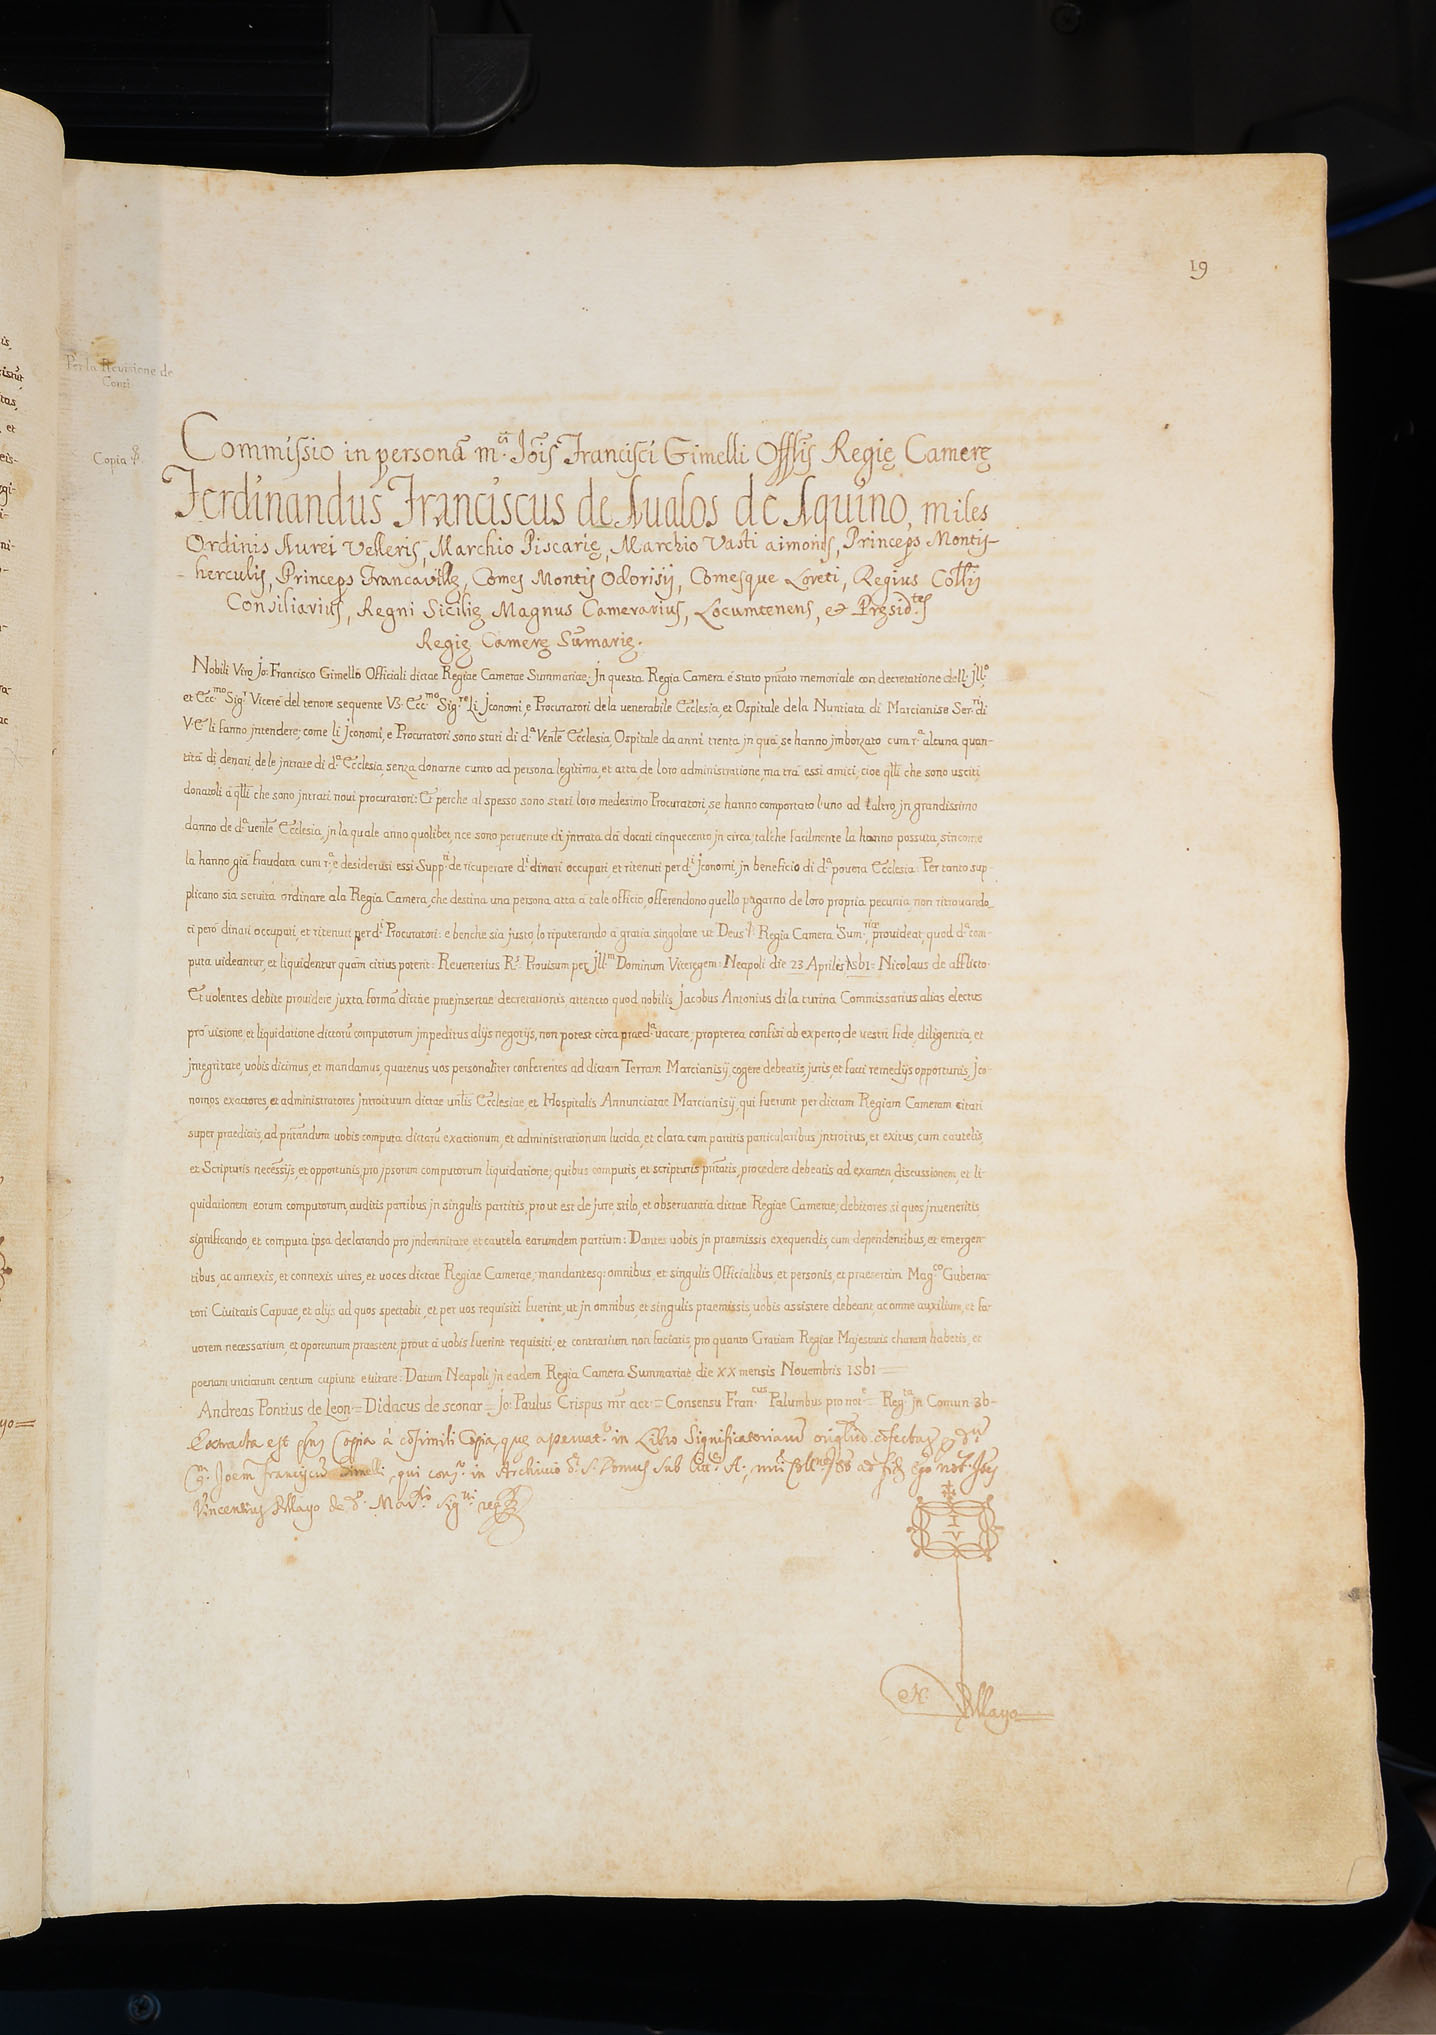 19
Per la Reuisione de
Conti
Copia
Commissio in personã m.ci Jõis Francisci Gimelli Offlis Regię Camerę
Ferdinandus Franciscus de Aualos de Aquino, miles
Ordinis Aurei Velleris, Marchio Piscarię, Marchio Vasti aimonis, Princeps Montis
herculis, Princeps Francauillę, Comes Montis Odorisij, Comesque Loreti, Regius Coll.
Consiliarius, Regni Sicilię Magnus Camerarius, Locumtenens, et Pręsid.tes
Regię Camerę Sũmarię.
Nobili Viro Jo: Francisco Gimello Officiali dictae Regiae Camerae Summariae; Jn questa Regia Camera é stato pñtato memoriale con decretatione dell. Jll.o
et Ecc.mo Sig.r Viceré del tenore sequente Vz. Ecc.mo Sig.re Li Jconomi, e Procuratori de la uenerabile Ecclesia, et Ospitale de la Nuntiata di Marcianise Ser.ri di
V. E. li fanno jntendere; come li Jconomi, e Procuratori sono stati di d.a Venle Ecclesia, Ospitale da anni trenta jn quà se hanno jmborzato cum r.a alcuna quan-
tità di denari, de le jntrate di d.a Ecclesia, senza donarne cunto ad persona legitima, et atta, de loro administratione, ma trà essi amici, cioe qlli che sono usciti,
donatoli à qlli che sono jntrati noui procuratori: Et perche al spesso sono stati loro medesimo Procuratori, se hanno comportato l'uno ad l'altro, jn grandissimo
danno de d.a uenle Ecclesia, jn la quale anno quolibet, nce sono peruenute di jntrata da docati cinquecento jn circa, talche facilmente la hanno possuta, sincome
la hanno già fraudata cum r.a, e desiderusi essi Supp.ti de ricuperare d.i dinari occupati, et ritenuti per d.i Jconomi, jn beneficio di d.a pouera Ecclesia: Per tanto sup
plicano sia seruita ordinare ala Regia Camera, che destina una persona atta à tale officio, offerendono quello pagarno de loro propria pecunia, non ritrouando-
ci però dinari occupati, et ritenuti per d.i Procuratori: e benche sia justo, lo riputerando à gratia singolare ut Deus: Regia Camera Sum.riae prouideat, quod d.a com-
puta uideantur, et liquidentur quàm citius poterit: Reuerterius R.s Prouisum per Jll.m Dominum Viceregem: Neapoli die 23 Aprilis 1561: Nicolaus de afflicto.
Et uolentes debite prouidere juxta formã dictae praejnsertae decretationis, attento quod nobilis Jacobus Antonius di la turina Commissarius alias electus
pro uisione et liquidatione dictorũ computorum jmpeditus alijs negotijs, non potest circa praed.a uacare; propterea confisi ab experto, de uestri fide, diligentia, et
jntegritate, uobis dicimus, et mandamus, quatenus uos personaliter conferentes ad dictam Terram Marcianisij, cogere debeatis, juris, et facti remedijs opportunis, Jco-
nomos exactores, et administratores jntroituum dictae unlis Ecclesiae, et Hospitalis Annunciatae Marcianisij, qui fuerunt per dictam Regiam Cameram citati
super praedictis, ad pñtandum uobis computa dictarũ exactionum, et administrationum lucida, et clara cum partitis particularibus jntroitus, et exitus, cum cautelis,
et Scripturis necessijs, et opportunis, pro jpsorum computorum liquidatione; quibus computis, et scripturis pñtatis, procedere debeatis ad examen, discussionem, et li
quidationem eorum computorum, auditis partibus jn singulis partitis, pro ut est de jure, stilo, et obseruantia dictae Regiae Camerae; debitores si quos jnueneritis
significando, et computa ipsa declarando pro jndemnitate et cautela earumdem partium: Dantes uobis jn praemissis exequendis, cum dependentibus, et emergen
tibus, ac annexis, et connexis uires, et uoces dictae Regiae Camerae; mandantesq: omnibus, et singulis Officialibus, et personis, et praesertim Mag.co Guberna
tori Ciuitatis Capuae, et alijs ad quos spectabit, et per uos requisiti fuerint, ut jn omnibus, et singulis praemissis, uobis assistere debeant, ac omne auxilium, et fa-
uorem necessarium, et oportunum praestent prout à uobis fuerint requisiti; et contrarium non faciatis, pro quanto Gratiam Regiae Majestatis charam habetis, et
poenam unciarum centum cupiunt euitare: Datum Neapoli jn eadem Regia Camera Summariae die XX mensis Nouembris 1561
Andreas Pontius de Leon = Didacus de sconar = Jo: Paulus Crispus mr act: = Consensu Fran.cus Palumbus pro not.e = Reg.ta jn Comun 36-
Extracta est Copia à cõsimili Copia, quę aperuat.r in Libro Significatoriarũ
Joem Franciscũ Gimelli, qui cons.r in Archiuio S. Domus sub
Vincentius Allayo de
I
V
N. Allayo